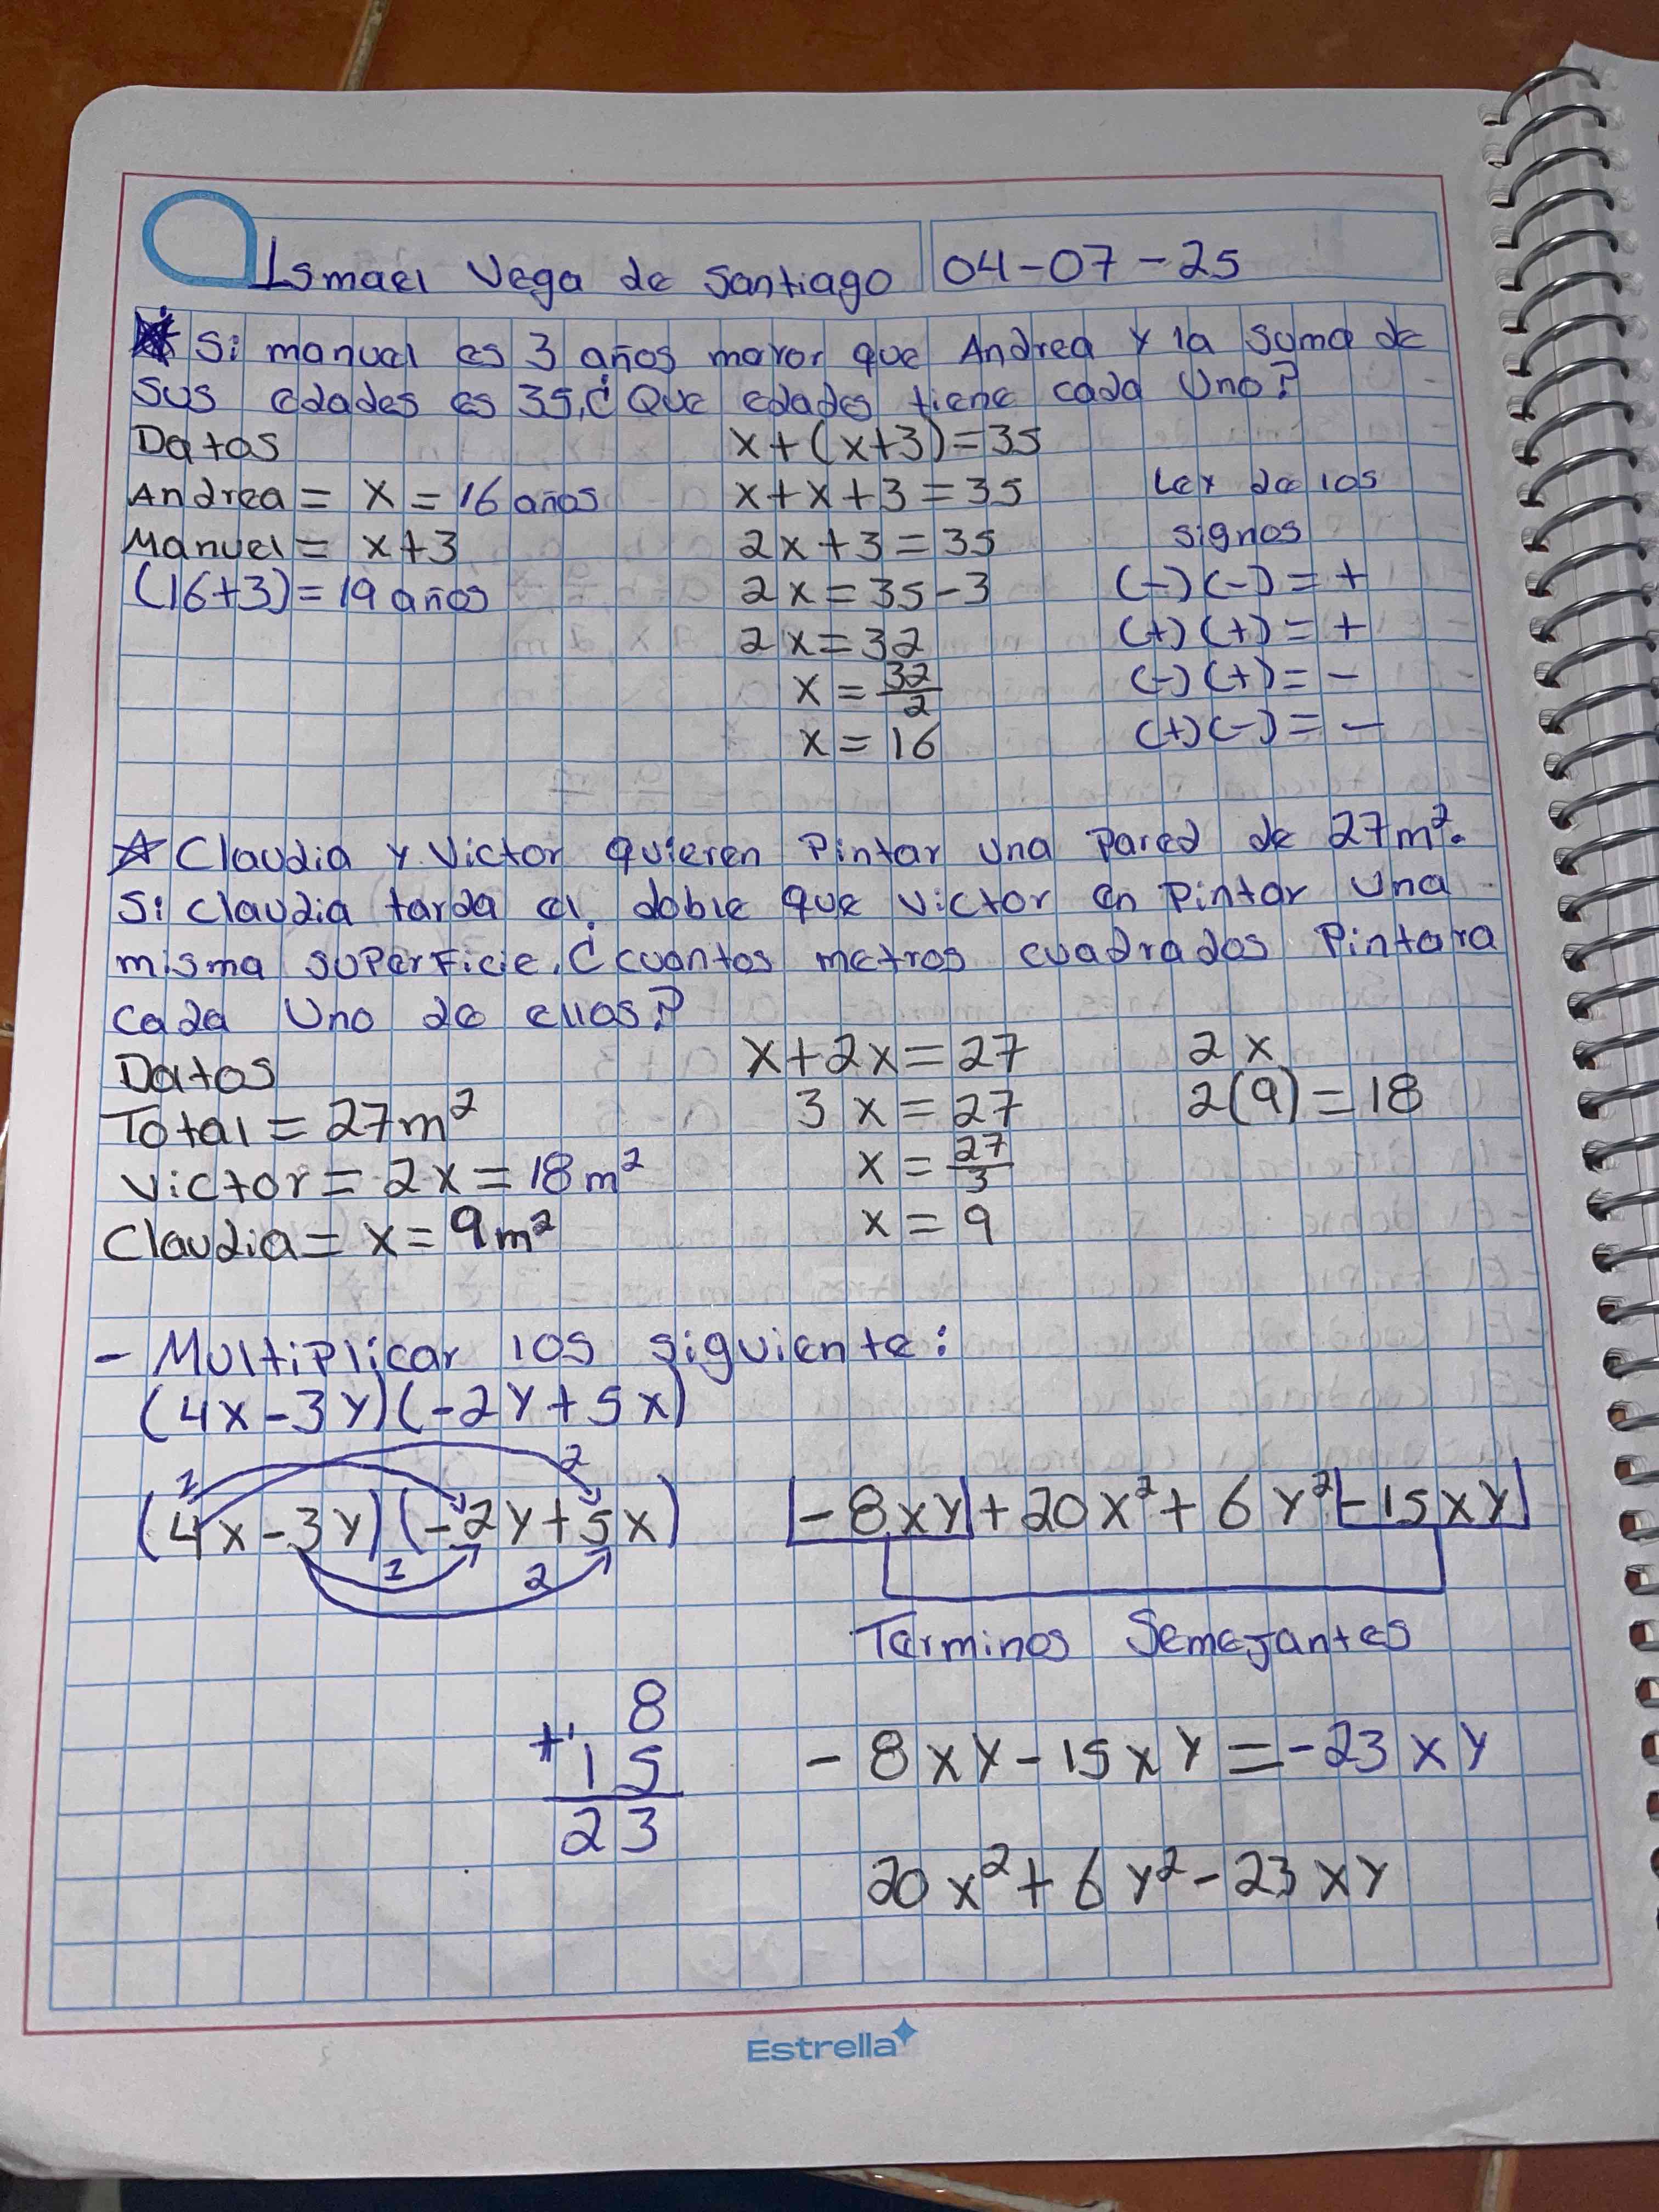 Ismael Vega de Santiago 04-07-25
Si manuel es 3 años mayor que Andrea y la suma de
sus edades es 35, ¿Que edades tiene cada Uno?
Datos
Andrea = x = 16 años
Manuel = x+3
(16+3) = 19 años
x+(x+3)=35
x+x+3=35
2x+3=35
2x=35-3
2x=32
x=32/2
x=16
Ley de los
signos
(-)(-)=+
(+)(+)=+
(-)(+)=-
(+)(-)=-
Claudia y Victor quieren Pintar una Pared de 27m².
Si claudia tarda el doble que victor en pintar una
misma superficie, ¿cuantos metros cuadrados Pintara
cada Uno de ellos?
Datos
Total = 27m²
Victor = 2x = 18m²
Claudia = x = 9m²
x+2x=27
3x=27
x=27/3
x=9
2x
2(9)=18
- Multiplicar los siguiente:
(4x-3y)(-2y+5x)
1 2
(4x-3y)(-2y+5x)
1 2
-8xy+20x²+6y²-15xy
Terminos Semejantes
8
+1
15
23
-8xy-15xy=-23xy
20x²+6y²-23xy
Estrella